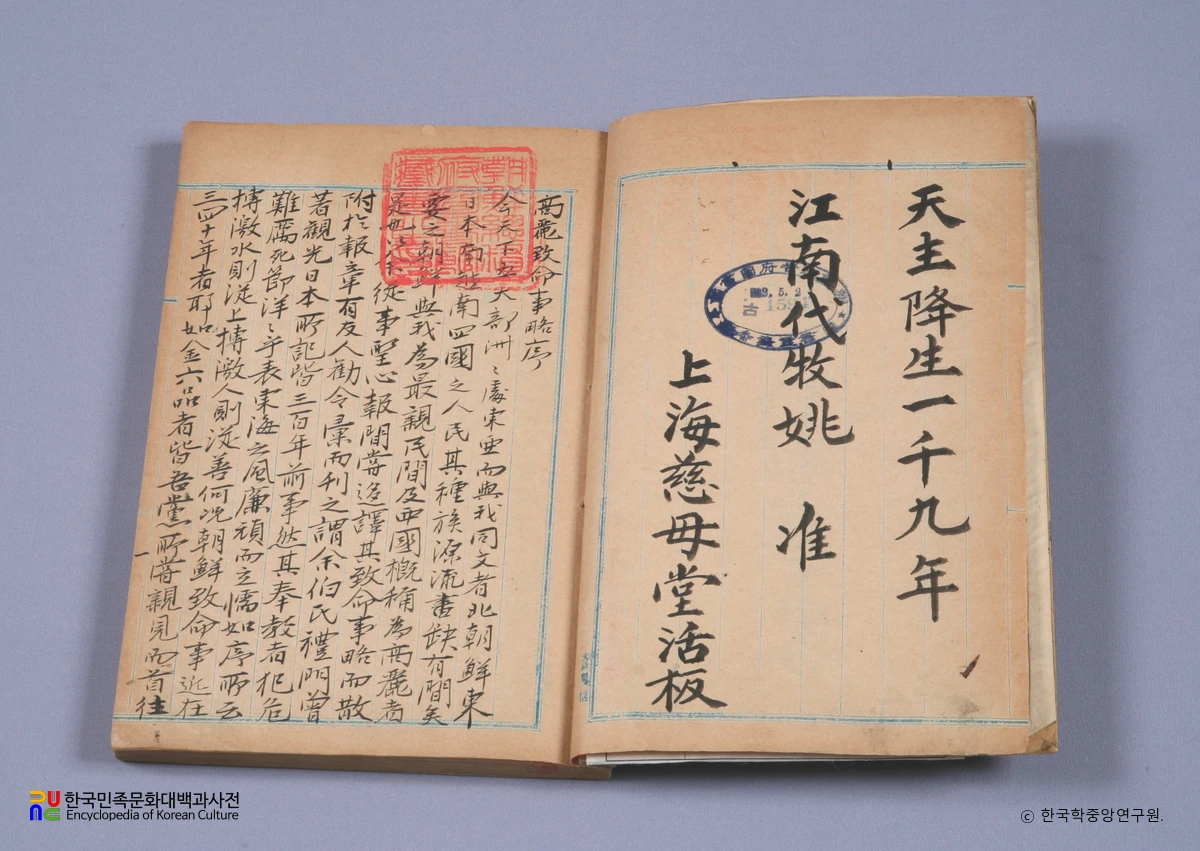 天主降生一千九年
江南代牧姚 准
上海慈母堂活板
高麗致命事略序
今天下五大部洲〻處東亜而與我同文者北朝鮮東
日本南越南四國之人民其種族源流書缺有間矣
要之朝鮮與我為最親民間及西國概稱為高麗者
是也余從事聖心報間嘗迻譯其致命事略而散
附於報章有友人勸令彙而刊之謂余伯氏禮門曾
著觀光日本所記皆三百年前事然其奉教者犯危
難厲死節洋〻乎表東海之風廉頑而立懦如序所云
搏激水則從上搏激人則從善何况朝鮮致命事近在
三四十年者耶如金六品者皆吾黨所嘗親見而首往
古
한국민족문화대백과사전
Encyclopedia of Korean Culture
ⓒ 한국학중앙연구원.